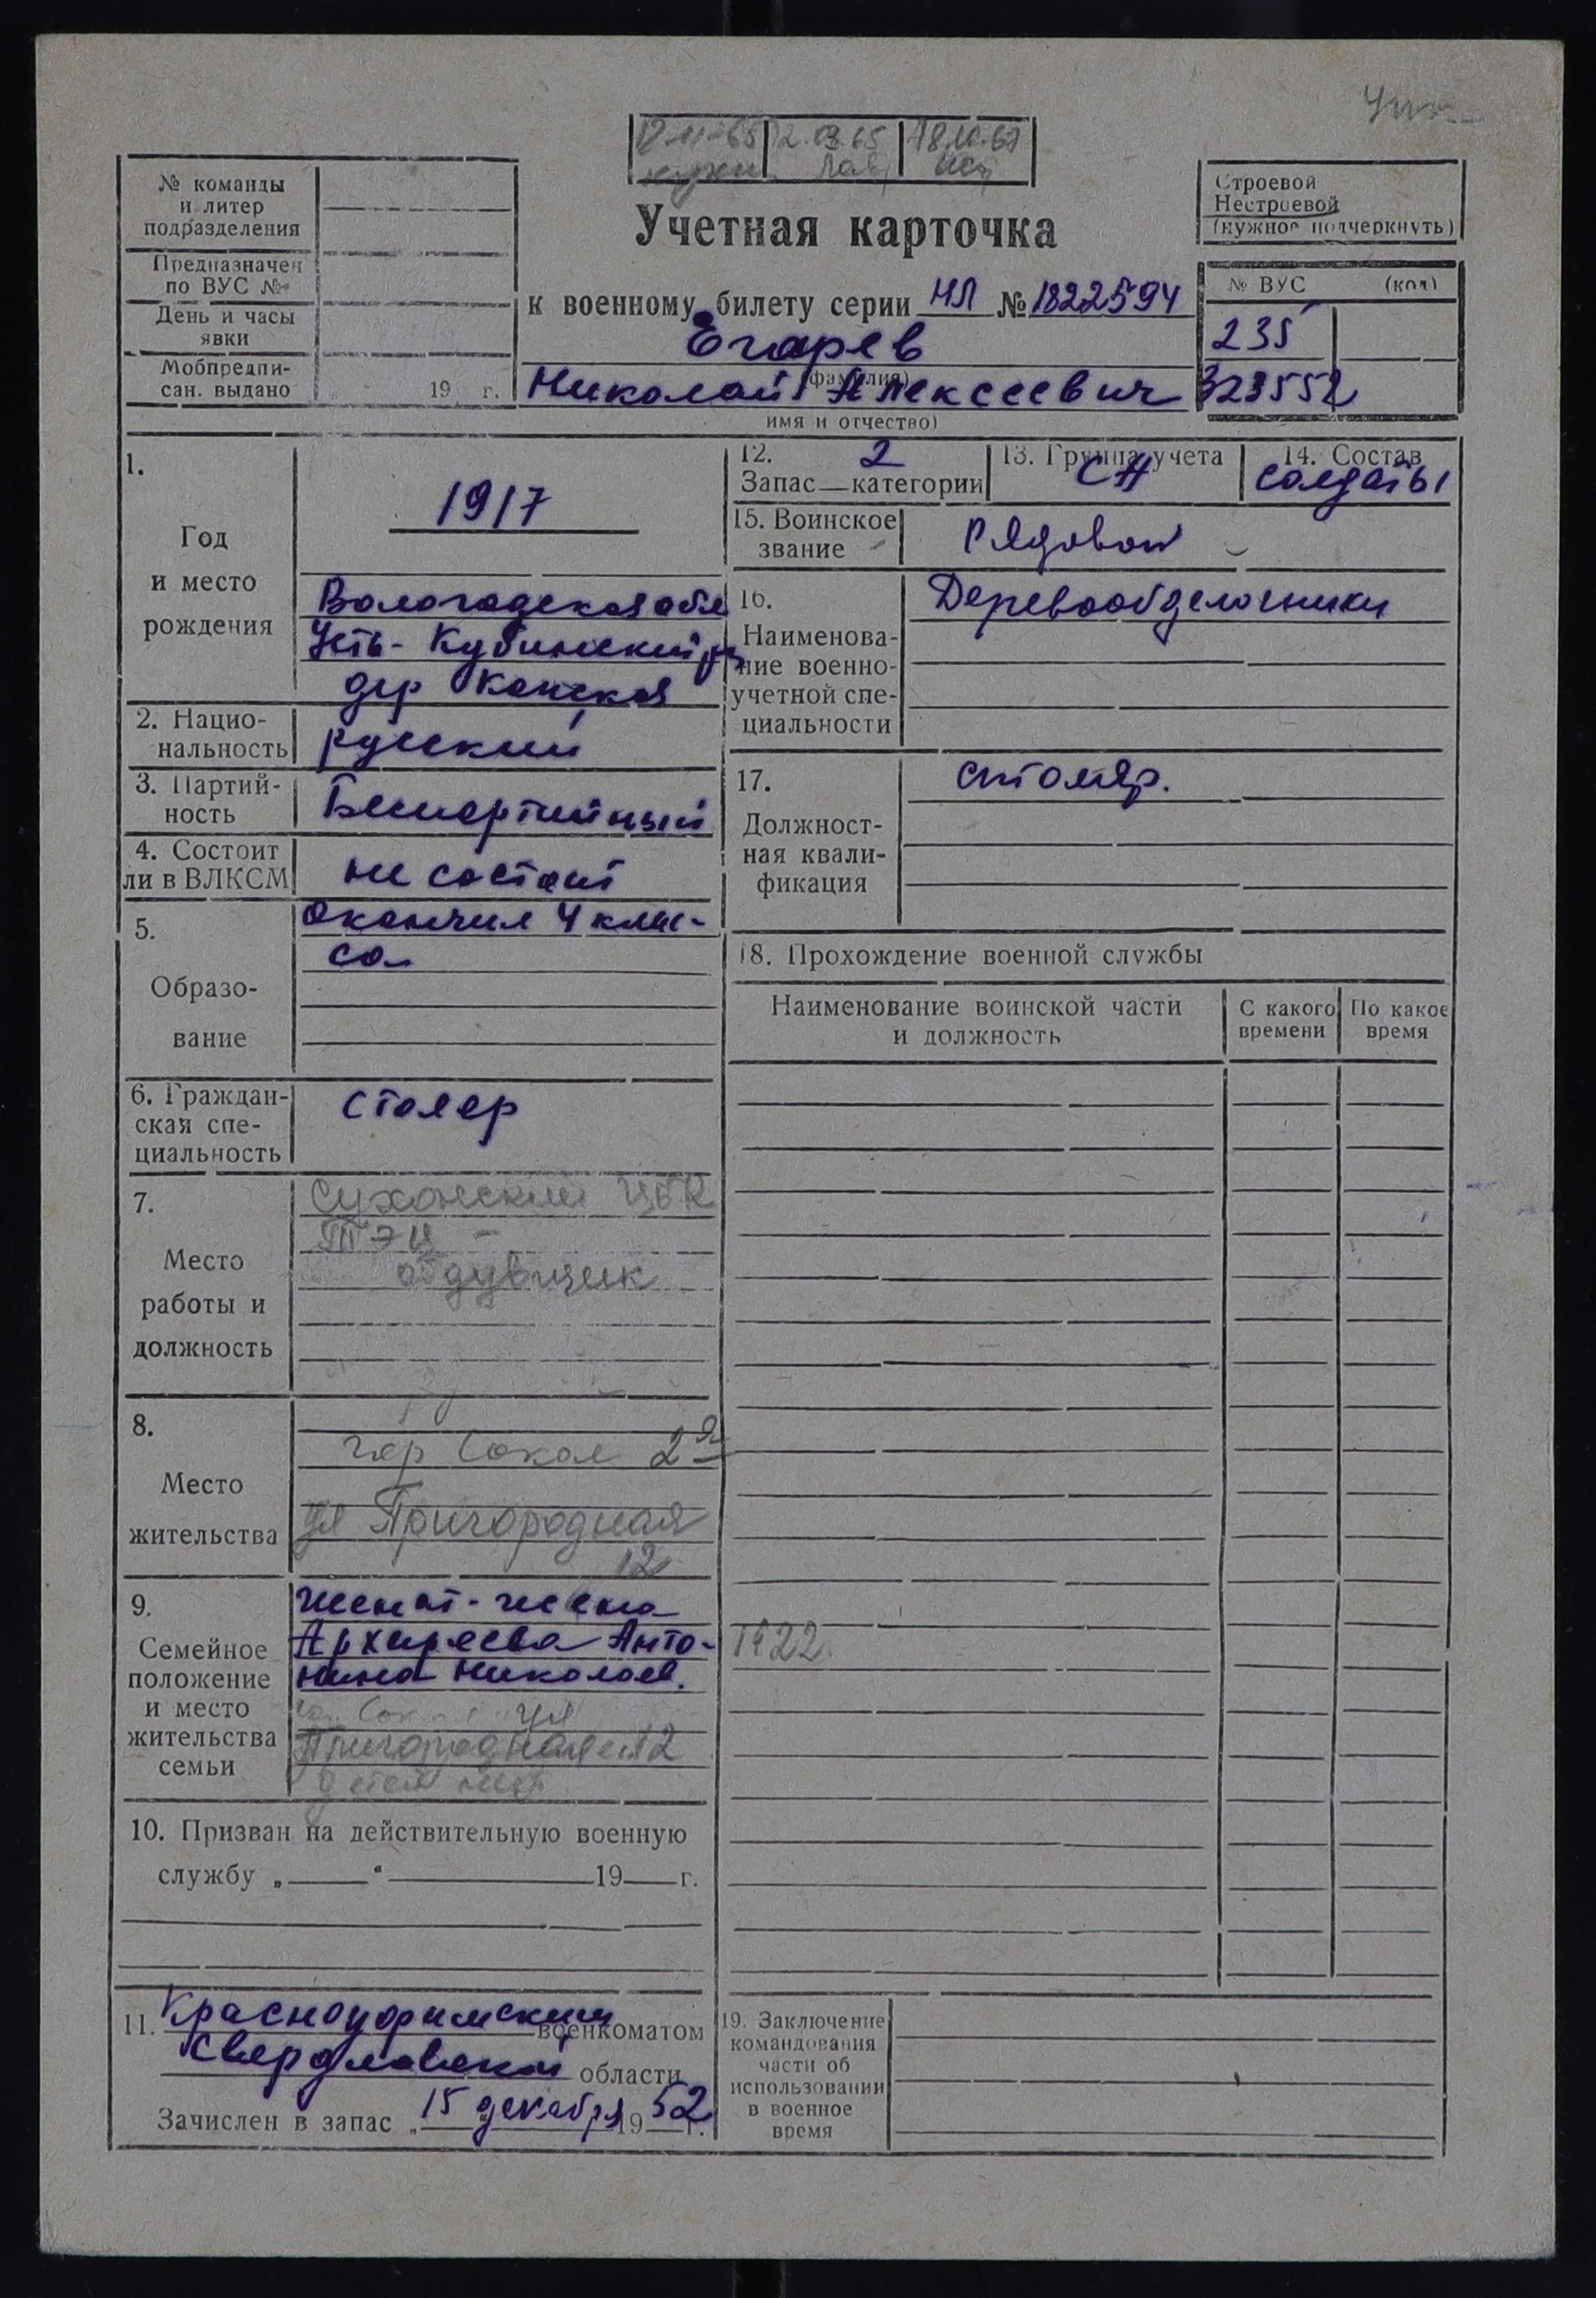 12.11.65 2.03.65 18.10.67
№ команды
и литер
подразделения
Предназначен
по ВУС №
День и часы
явки
Мобпредпи-
сан. выдано 19 г.
Учетная карточка
к военному билету серии НЛ № 1822594
Егарев
(фамилия)
Николай Алексеевич
имя и отчество)
Строевой
Нестроевой
(нужное подчеркнуть)
№ ВУС (код)
235
323552
1.
Год
и место
рождения
1917
Вологодская обл
Усть-Кубинский рн
дер Канская
2. Нацио-
нальность
русский
3. Партий-
ность
Беспартийный
4. Состоит
ли в ВЛКСМ
не состоит
5.
Образо-
вание
Окончил 4 клас-
са
6. Граждан-
ская спе-
циальность
столяр
7.
Место
работы и
должность
Сухонский ЦБК
ТЭЦ -
обдувщик
8.
Место
жительства
гор Сокол 2я
ул Пригородная
12
9.
Семейное
положение
и место
жительства
семьи
женат - жена
Архиреева Анто-
нина Николаев.
Сокол ул
Пригородная 12
детей нет
10. Призван на действительную военную
службу „ “ 19 г.
11. Красноуфимским военкоматом
Свердловской области
Зачислен в запас „ 15 “ декабря 19 52 г.
12. 2
Запас — категории
13. Группа учета
СН
14. Состав
солдаты
15. Воинское
звание
Рядовой
16.
Наименова-
ние военно-
учетной спе-
циальности
Деревообделочники
17.
Должност-
ная квали-
фикация
столяр.
18. Прохождение военной службы
Наименование воинской части
и должность
С какого
времени
По какое
время
1922
19. Заключение
командования
части об
использовании
в военное
время